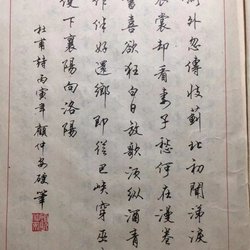 外忽傳收薊北初聞涕淚
衣裳却看妻子愁何在漫卷
書喜欲狂白日放歌須縱酒青
作伴好還鄉即從巴峽穿巫
便下襄陽向洛陽
杜甫詩丙寅年顧仲安硬筆